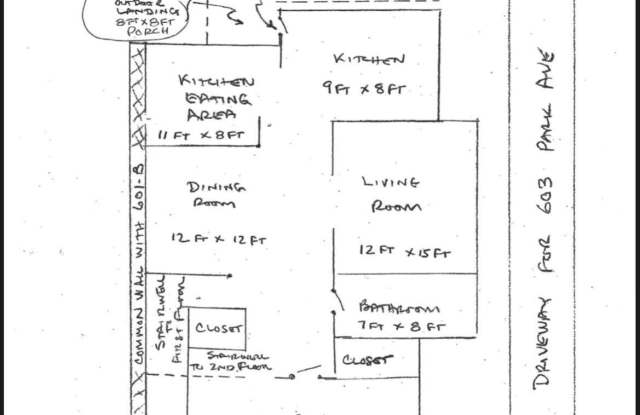 OUTDOOR
LANDING
8FT X 8FT
PORCH
KITCHEN
9FT X 8FT
KITCHEN
EATING
AREA
11 FT X 8FT
DINING
ROOM
12 FT X 12 FT
LIVING
ROOM
12 FT X 15FT
BATHROOM
7FT X 8 FT
CLOSET
CLOSET
STAIRWELL
TO
FIRST FLOOR
STAIRWELL
TO 2ND FLOOR
COMMON WALL WITH 601-B
DRIVEWAY FOR 603 PARK AVE